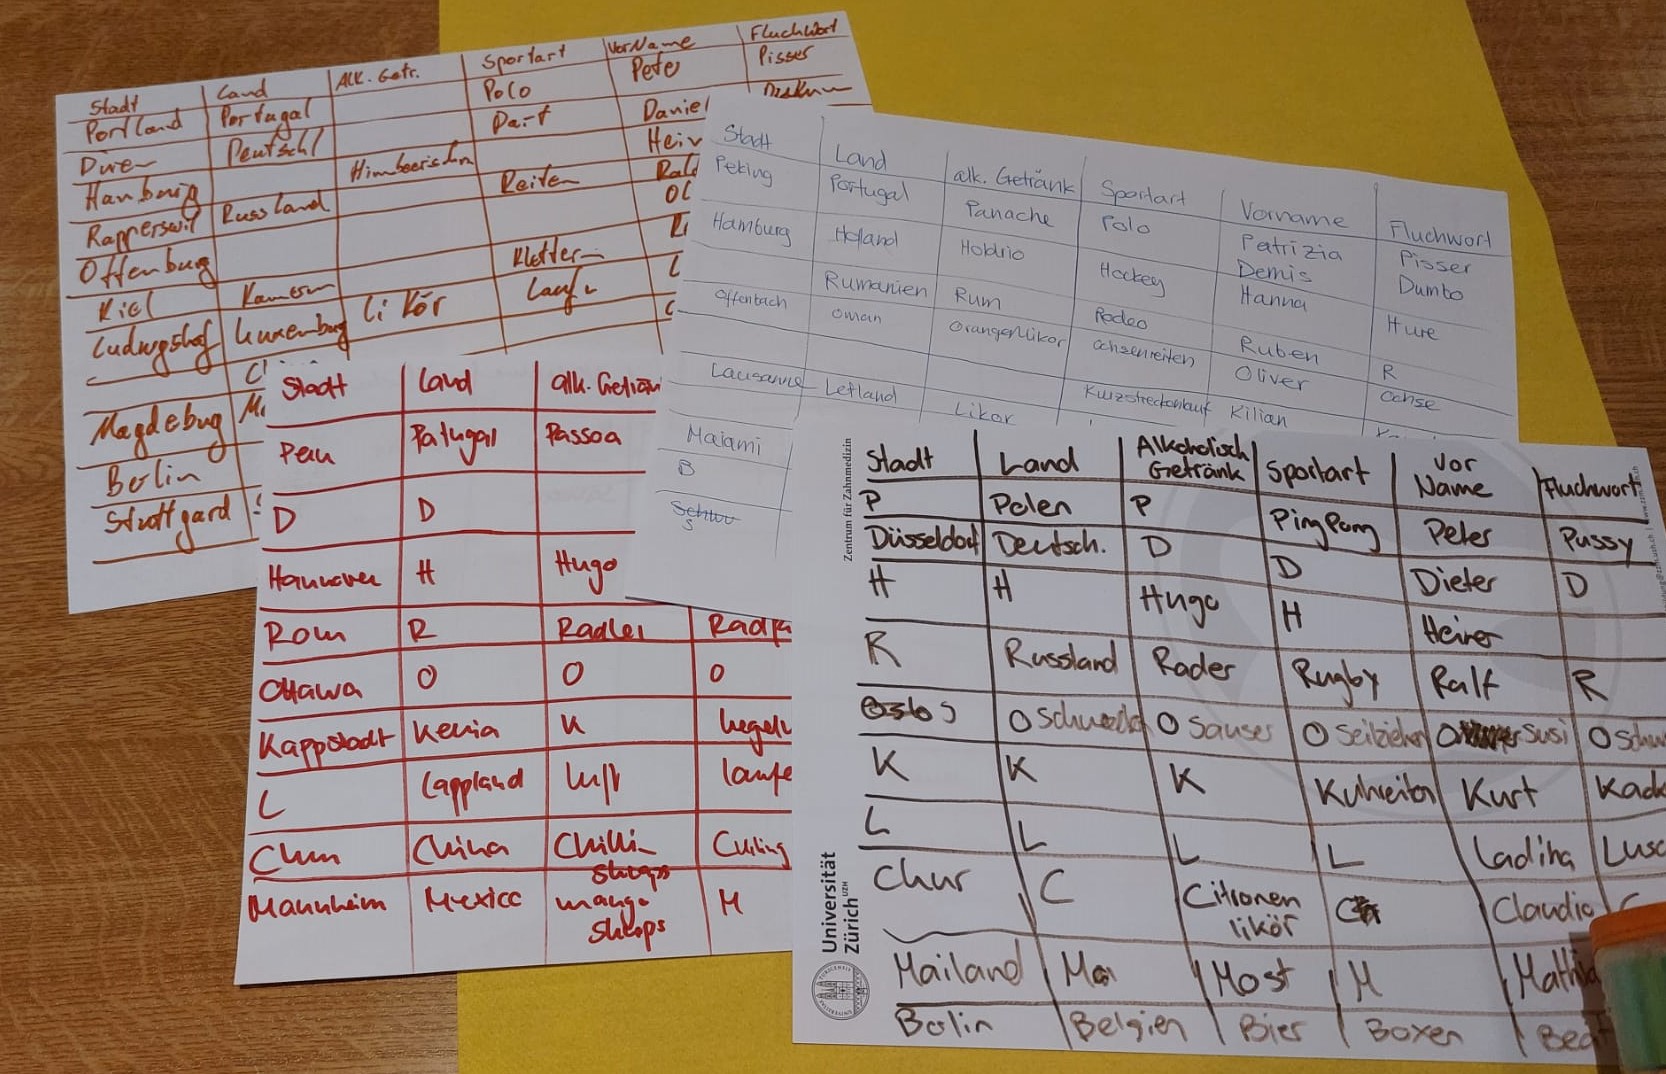 Stadt Land Alk. Getr. Sportart VorName Fluchwort
Portland Portugal Polo Pete Pisser
Düren Deutschl Dart Daniel
Hamburg Himbeerischn Heiv
Rapperswil Russland Reiten Ral
Offenburg Ol
Kiel Kamerun Klettern
Ludwigshaf Luxenburg Likör Laufn L
Magdeburg M
Berlin
Stuttgard S
Stadt Land alk. Getränk Sportart Vorname Fluchwort
Peking Portugal Panache Polo Patrizia Pisser
Demis Dumbo
Hamburg Holland Hobdrio Hockey Hanna Hure
Rumänien Rum Rodeo Ruben R
Offenbach Oman Orangenlikör Ochsenreiten Oliver Ochse
Kurzstreckenlauf Kilian
Lausanne Letland Likör
Maiami
B
S
Stadt Land alk. Geträn
Peru Patugal Passoa
D D
Hannover H Hugo
Rom R Radler
Ottawa O O O
Kappstadt Kenia K kegeln
L Lappland Luft laufe
Chur China Chilli-
shnaps
Mannheim Mexico mango M
shnaps
Zentrum für Zahnmedizin
Stadt Land Alkoholisch Getränk Sportart Vor Name Fluchwort
P Polen P PingPong Peter Pussy
Düsseldorf Deutsch. D D Dieter D
H H Hugo H Heiner
R Russland Rader Rugby Ralf R
Oslo S O Schweden O Sauser O Seilziehen O Susi O Schw
K K K Kuhreiten Kurt Kack
L L L L Ladina Lusc
Chur C Citronen likör C Claudio C
Mailand Ma Most M Mathi
Berlin Belgien Bier Boxen Bea
Universität
Zürich UZH